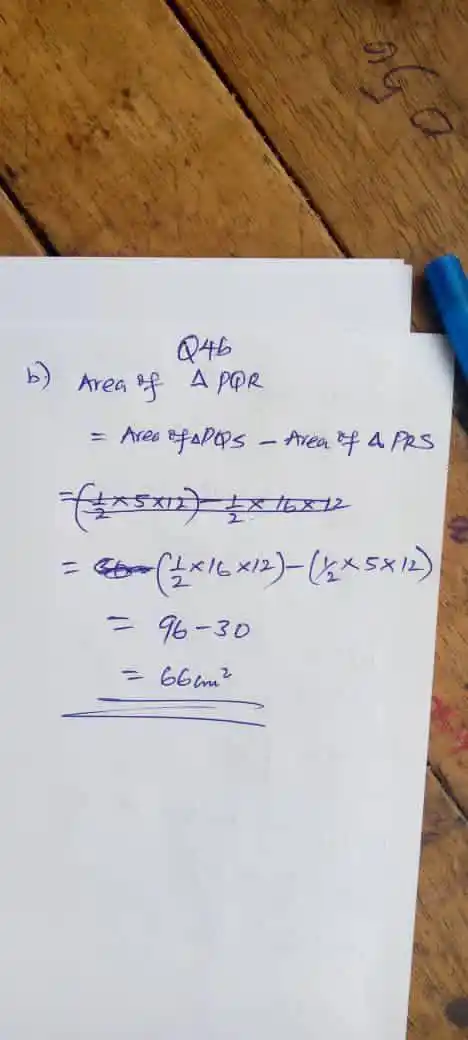 Q46
b) Area of Δ PQR
= Area of ΔPQS - Area of Δ PRS
=(1/2 × 5 × 12) - 1/2 × 16 × 12
= (1/2 × 16 × 12) - (1/2 × 5 × 12)
= 96 - 30
= 66cm²